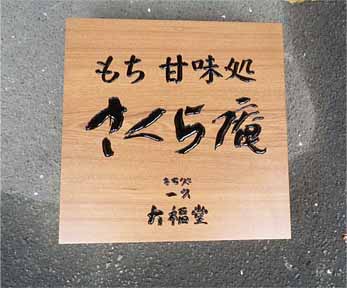 もち 甘味処
さくら庵
もち処
一久
大福堂